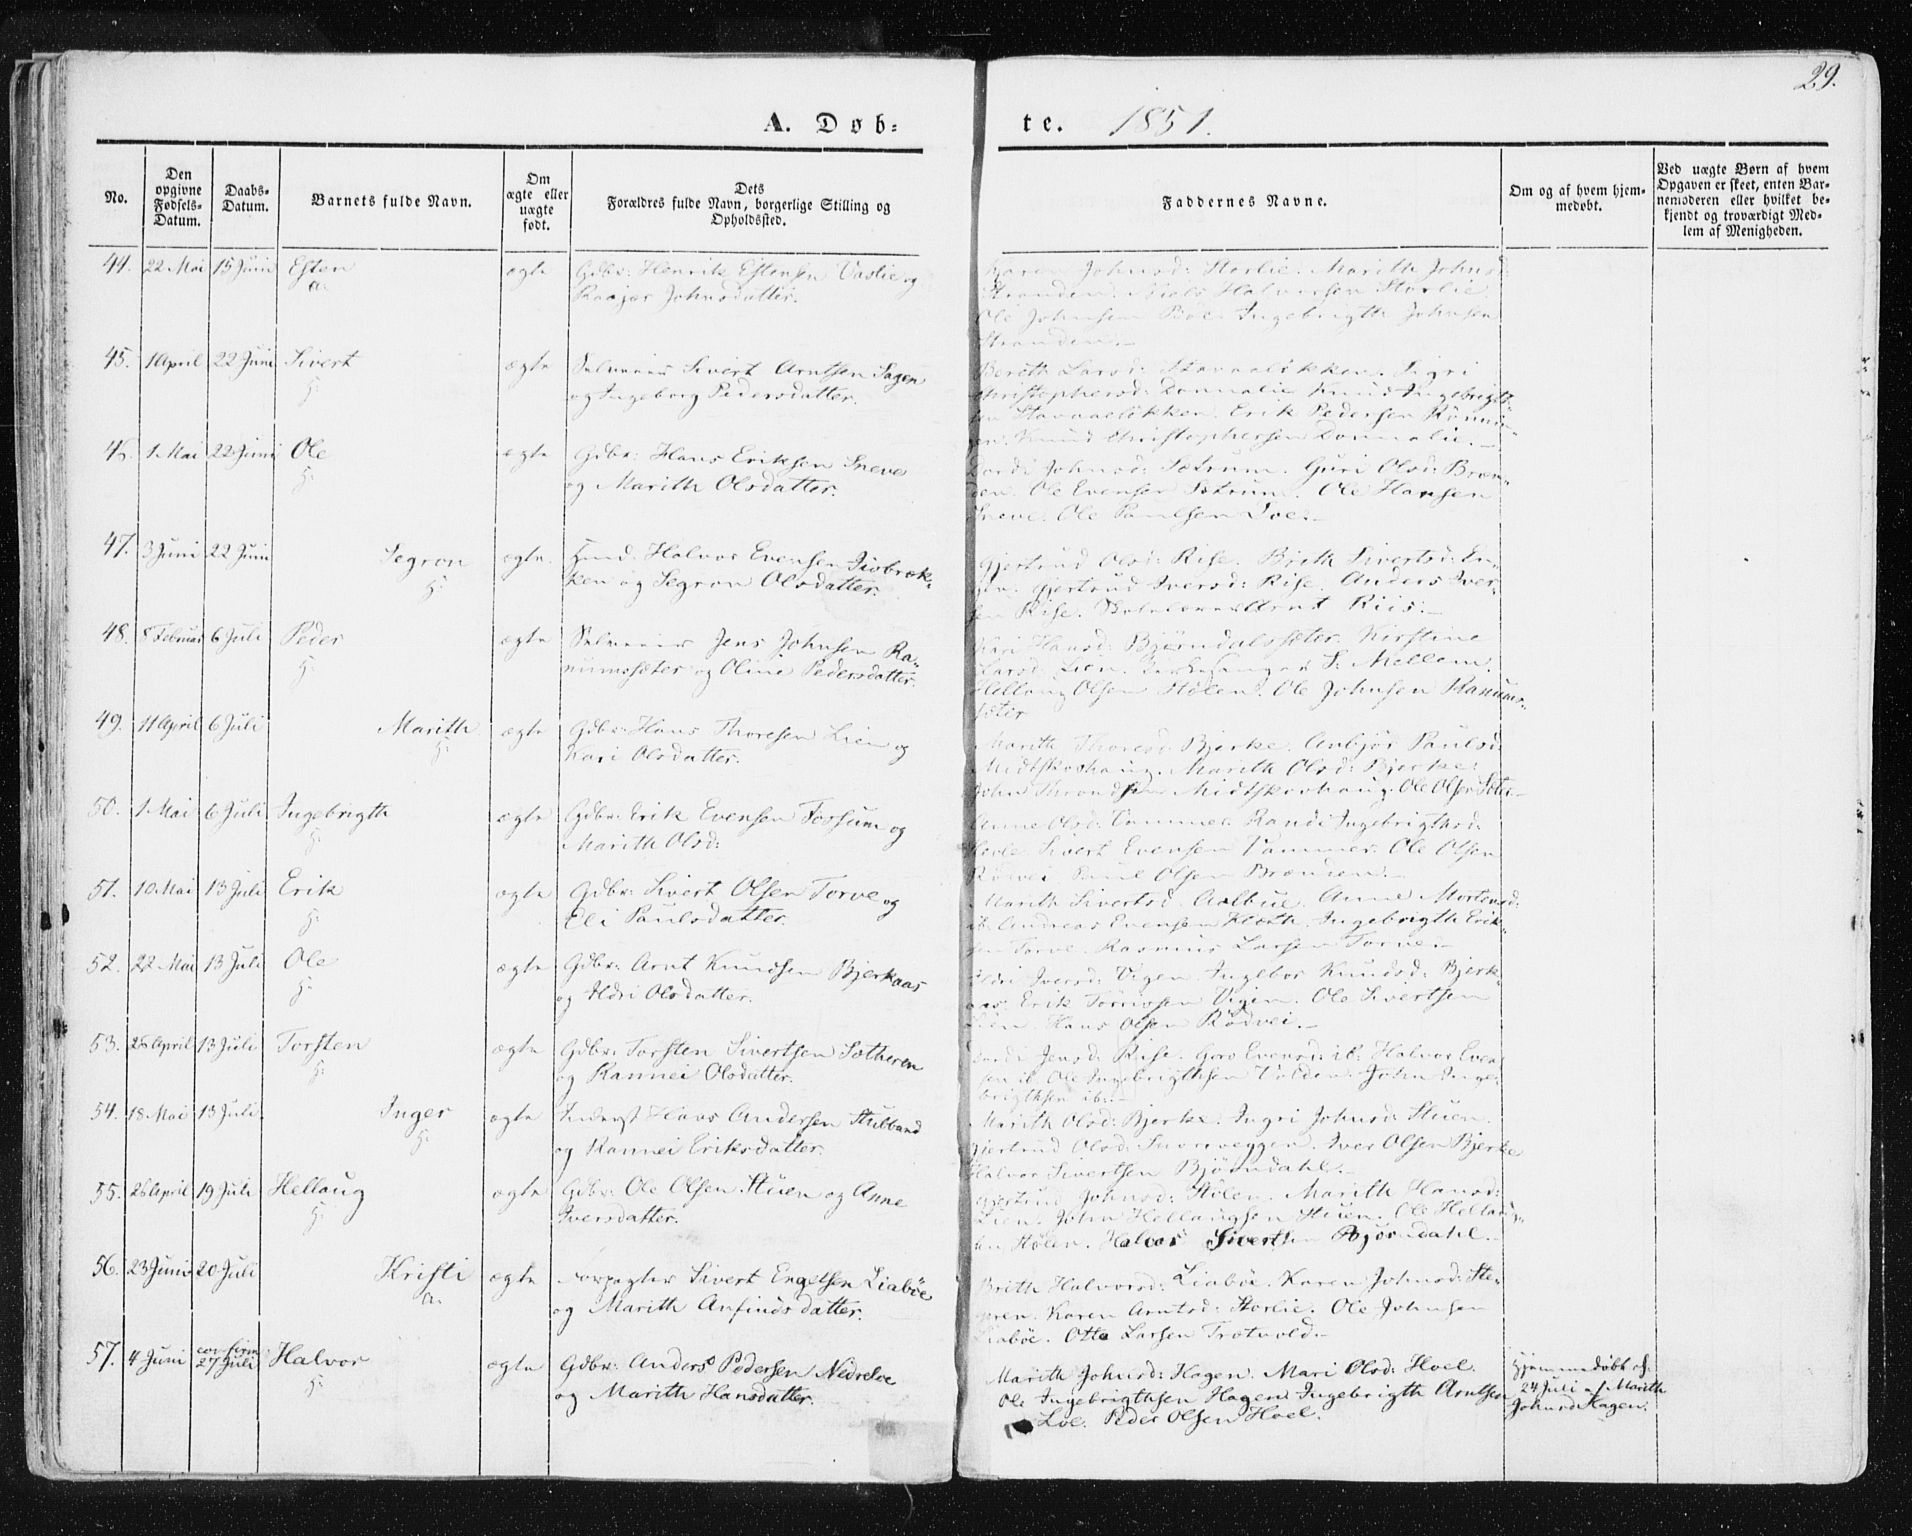 29.
A. Døb-
te. 1851.
No.
Den opgivne Fødsels-Datum.
Daabs-Datum.
Barnets fulde Navn.
Om ægte eller uægte født.
Dets Forældres fulde Navn, borgerlige Stilling og Opholdssted.
Faddernes Navne.
Om og af hvem hjem-medøbt.
Ved uægte Børn af hvem Opgaven er skeet, enten Bar-nemoderen eller hvilket be-kjendt og troværdigt Med-lem af Menigheden.
44. 22 Mai 15 Juni Esten ægte Gdbr: Henrik Estensen Vaslie og
a. Johnsdatter.
Karen Johnsd: Storlie. Marith Johnsd:
Stranden. Niels Halvorsen Storlie.
Ole Johnsen Ingebrigth Johnsen
Stranden.
45. 1 April 22 Juni Sivert ægte Selveier Sivert Arntsen Sagen
H: og Ingeborg Pedersdatter.
Berith Larsd: Stavaaløkken. Sigri
Christophersd: Donnalie Knud Ingebrigt-
sen Stavaaløkken. Erik Pedersen
Knud Christophersen Donnalie.
46. 1 Mai 22 Juni Ole ægte Gdbr: Hans Eriksen Sneve
H: og Marith Olsdatter.
Johnsd: Sætrum. Guri Olsd: Bræn-
den. Ole Evensen Sætrum. Ole Hansen
Sneve. Ole Paulsen Loe.
47. 3 Juni 22 Juni Segron ægte Halvor Evensen Risbræk-
H: ken og Segron Olsdatter.
Gjertrud Olsd: Rise. Brith Sivertsd: En-
gen. Gjertrud Iversd: Rise. Anders Iver-
sen Rise. Arnt Riis.
48. 8 Februar 6 Juli Peder ægte Selveier Jens Johnsen Ra-
H: numsæter og Oline Pedersdatter.
Kari Hansd: Bjørndalssæter. Kirstine
Larsd: Lien. Kirkesanger S: Mellem.
Hellaug Olsen Stølen. Ole Johnsen Ranums-
sæter
49. 11 April 6 Juli Marith ægte Gdbr: Hans Thoresen Lien og
H: Kari Olsdatter.
Marith Thoresd: Bjerke. Anbjør Paulsd:
Midtskovhaug. Marith Olsd: Bjerke.
John Throndsen Midtskovhaug. Ole Olsen Sæter
50. 1 Mai 6 Juli Ingebrigth ægte Gdbr: Erik Evensen Fossum og
H: Marith Olsd:
Anne Olsd: Vammer. Randi Ingebrigthsd:
Sivert Evensen Vammer. Ole Olsen
Rødvei. Paul Olsen Brænden.
51. 10 Mai 13 Juli Erik ægte Gdbr: Sivert Olsen Torve og
H: Eli Paulsdatter.
Marith Sivertsd. Aalbue. Anne Mortensd:
ib. Andreas Evensen Klæth. Ingebrigth Erik-
sen Torve. Rasmus Larsen Torve.
52. 22 Mai 13 Juli Ole ægte Gdbr: Arnt Knudsen Bjerkaas
H: og Ildri Olsdatter.
Ildri Iversd: Vigen. Ingebor Knudsd: Bjerk-
aas. Erik Torrissen Vigen. Ole Sivertsen
Lien. Hans Olsen Rødvei.
53. 28 April 13 Juli Torsten ægte Gdbr: Torsten Sivertsen Sætheren
H: og Rannei Olsdatter.
Jensd: Rise. Goro Evensd: ib. Halvor Even-
sen ib. Ole Ingebrigthsen Volden. John Inge-
brigthsen ib.
54. 18 Mai 13 Juli Inger ægte Inderst Hans Andersen Stulband
H: og Rannei Eriksdatter.
Marith Olsd: Bjerke. Ingri Johnsd: Stuen.
Gjertrud Olsd: Snoreveggen. Iver Olsen Bjerke
Halvor Sivertsen Bjørndahl.
55. 26 April 19 Juli Hellaug ægte Gdbr: Ole Olsen Stuen og Anne
H: Iversdatter.
Gjertrud Johnsd: Stølen. Marith Hansd:
Lien. John Hellaugsen Stuen. Ole Hellaug-
sen Stølen. Halvor Sivertsen Bjørndahl.
56. 23 Juni 20 Juli Kristi ægte Forpagter Sivert Engelsen Liabøe
a. og Marith Anfindsdatter.
Brith Halvorsd: Liabøe. Karen Johnsd: Ste-
gren. Karen Arntsd: Storlie. Ole Johnsen
Liabøe. Otte Larsen Trætvold.
57. 4 Juni confirm. 27 Juli Halvor ægte Gdbr: Anders Pedersen Nedreloe
H: og Marith Hansdatter.
Marith Johnsd: Hagen. Mari Olsd: Hoel.
Ole Ingebrigthsen Hagen. Ingebrigth Arntsen
Loe. Peder Olsen Hoel.
Hjemmedøbt d:
24 Juli af Marith
Johnsd Hagen.